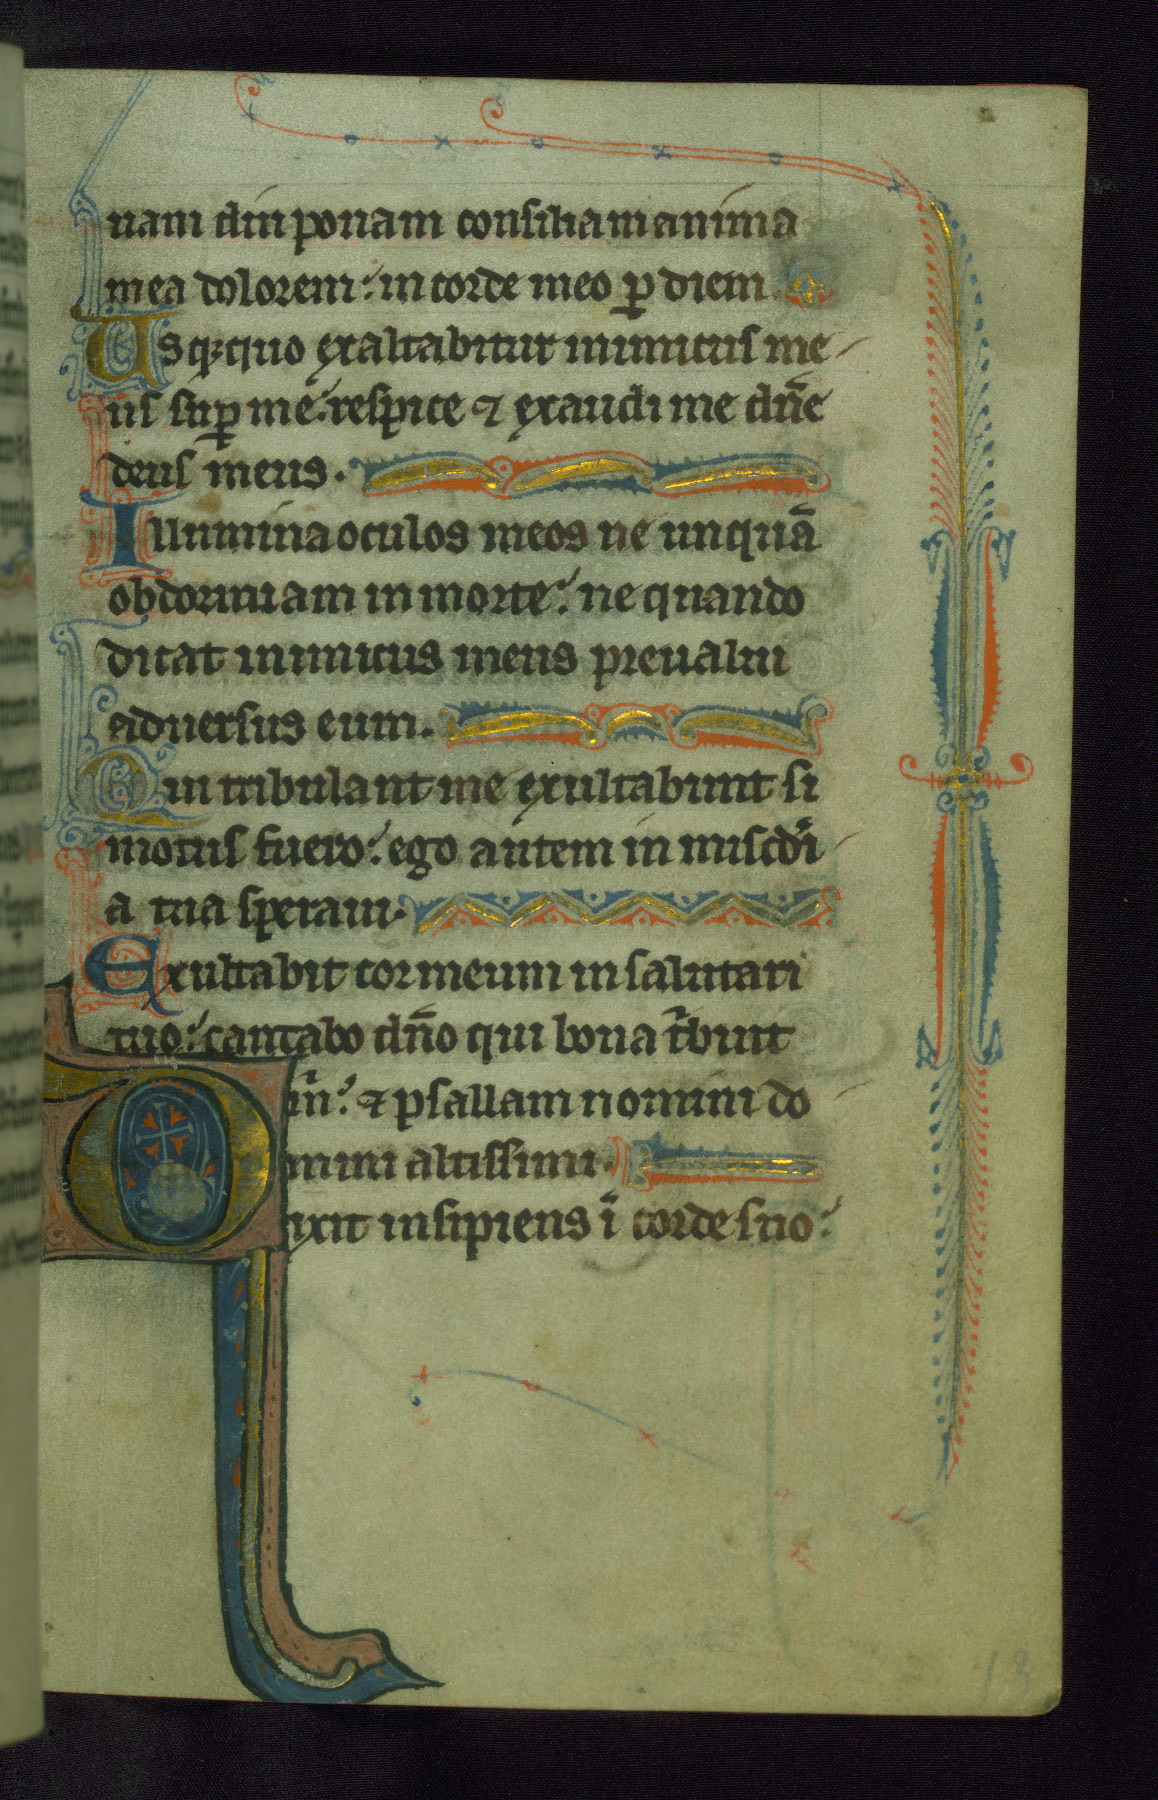 nam diu ponam consilia in anima
mea dolorem: in corde meo ꝑ diem
Usqꝫquo exaltabitur inimicus me
us suꝑ me: respice ⁊ exaudi me dn̄e
deus meus.
Illumina oculos meos ne unquā
obdormiam in morte: ne quando
dicat inimicus meus preualui
aduersus eum.
Qui tribulant me exultabunt si
motus fuero: ego autem in miscdi
a tua speraui.
Exultabit cor meum in salutari
tuo: cantabo dn̄o qui bona tbuit
m: ⁊ psallam nomini do
mini altissimi.
Dixit insipiens ī corde suo:
13